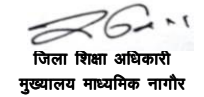 जिला शिक्षा अधिकारी
मुख्यालय माध्यमिक नागौर